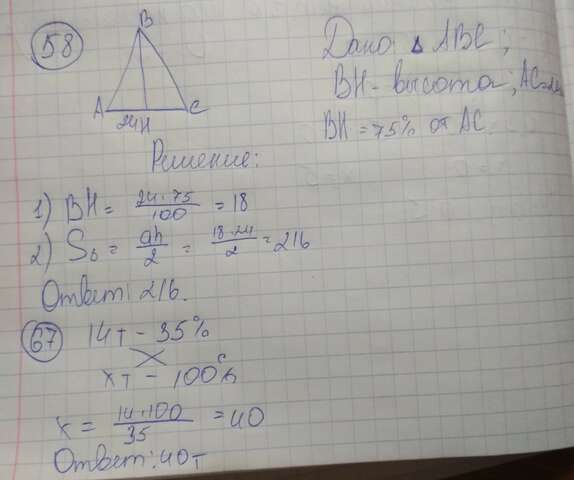 58
B
A
C
24
H
Дано: Δ ABC;
BH - высота; AC=24
BH = 75% от AC.
Решение:
1) BH = 24·75/100 = 18
2) S₆ = ah/2 = 18·24/2 = 216
Ответ: 216.
67
14т - 35%
xт - 100%
x = 14·100/35 = 40
Ответ: 40т